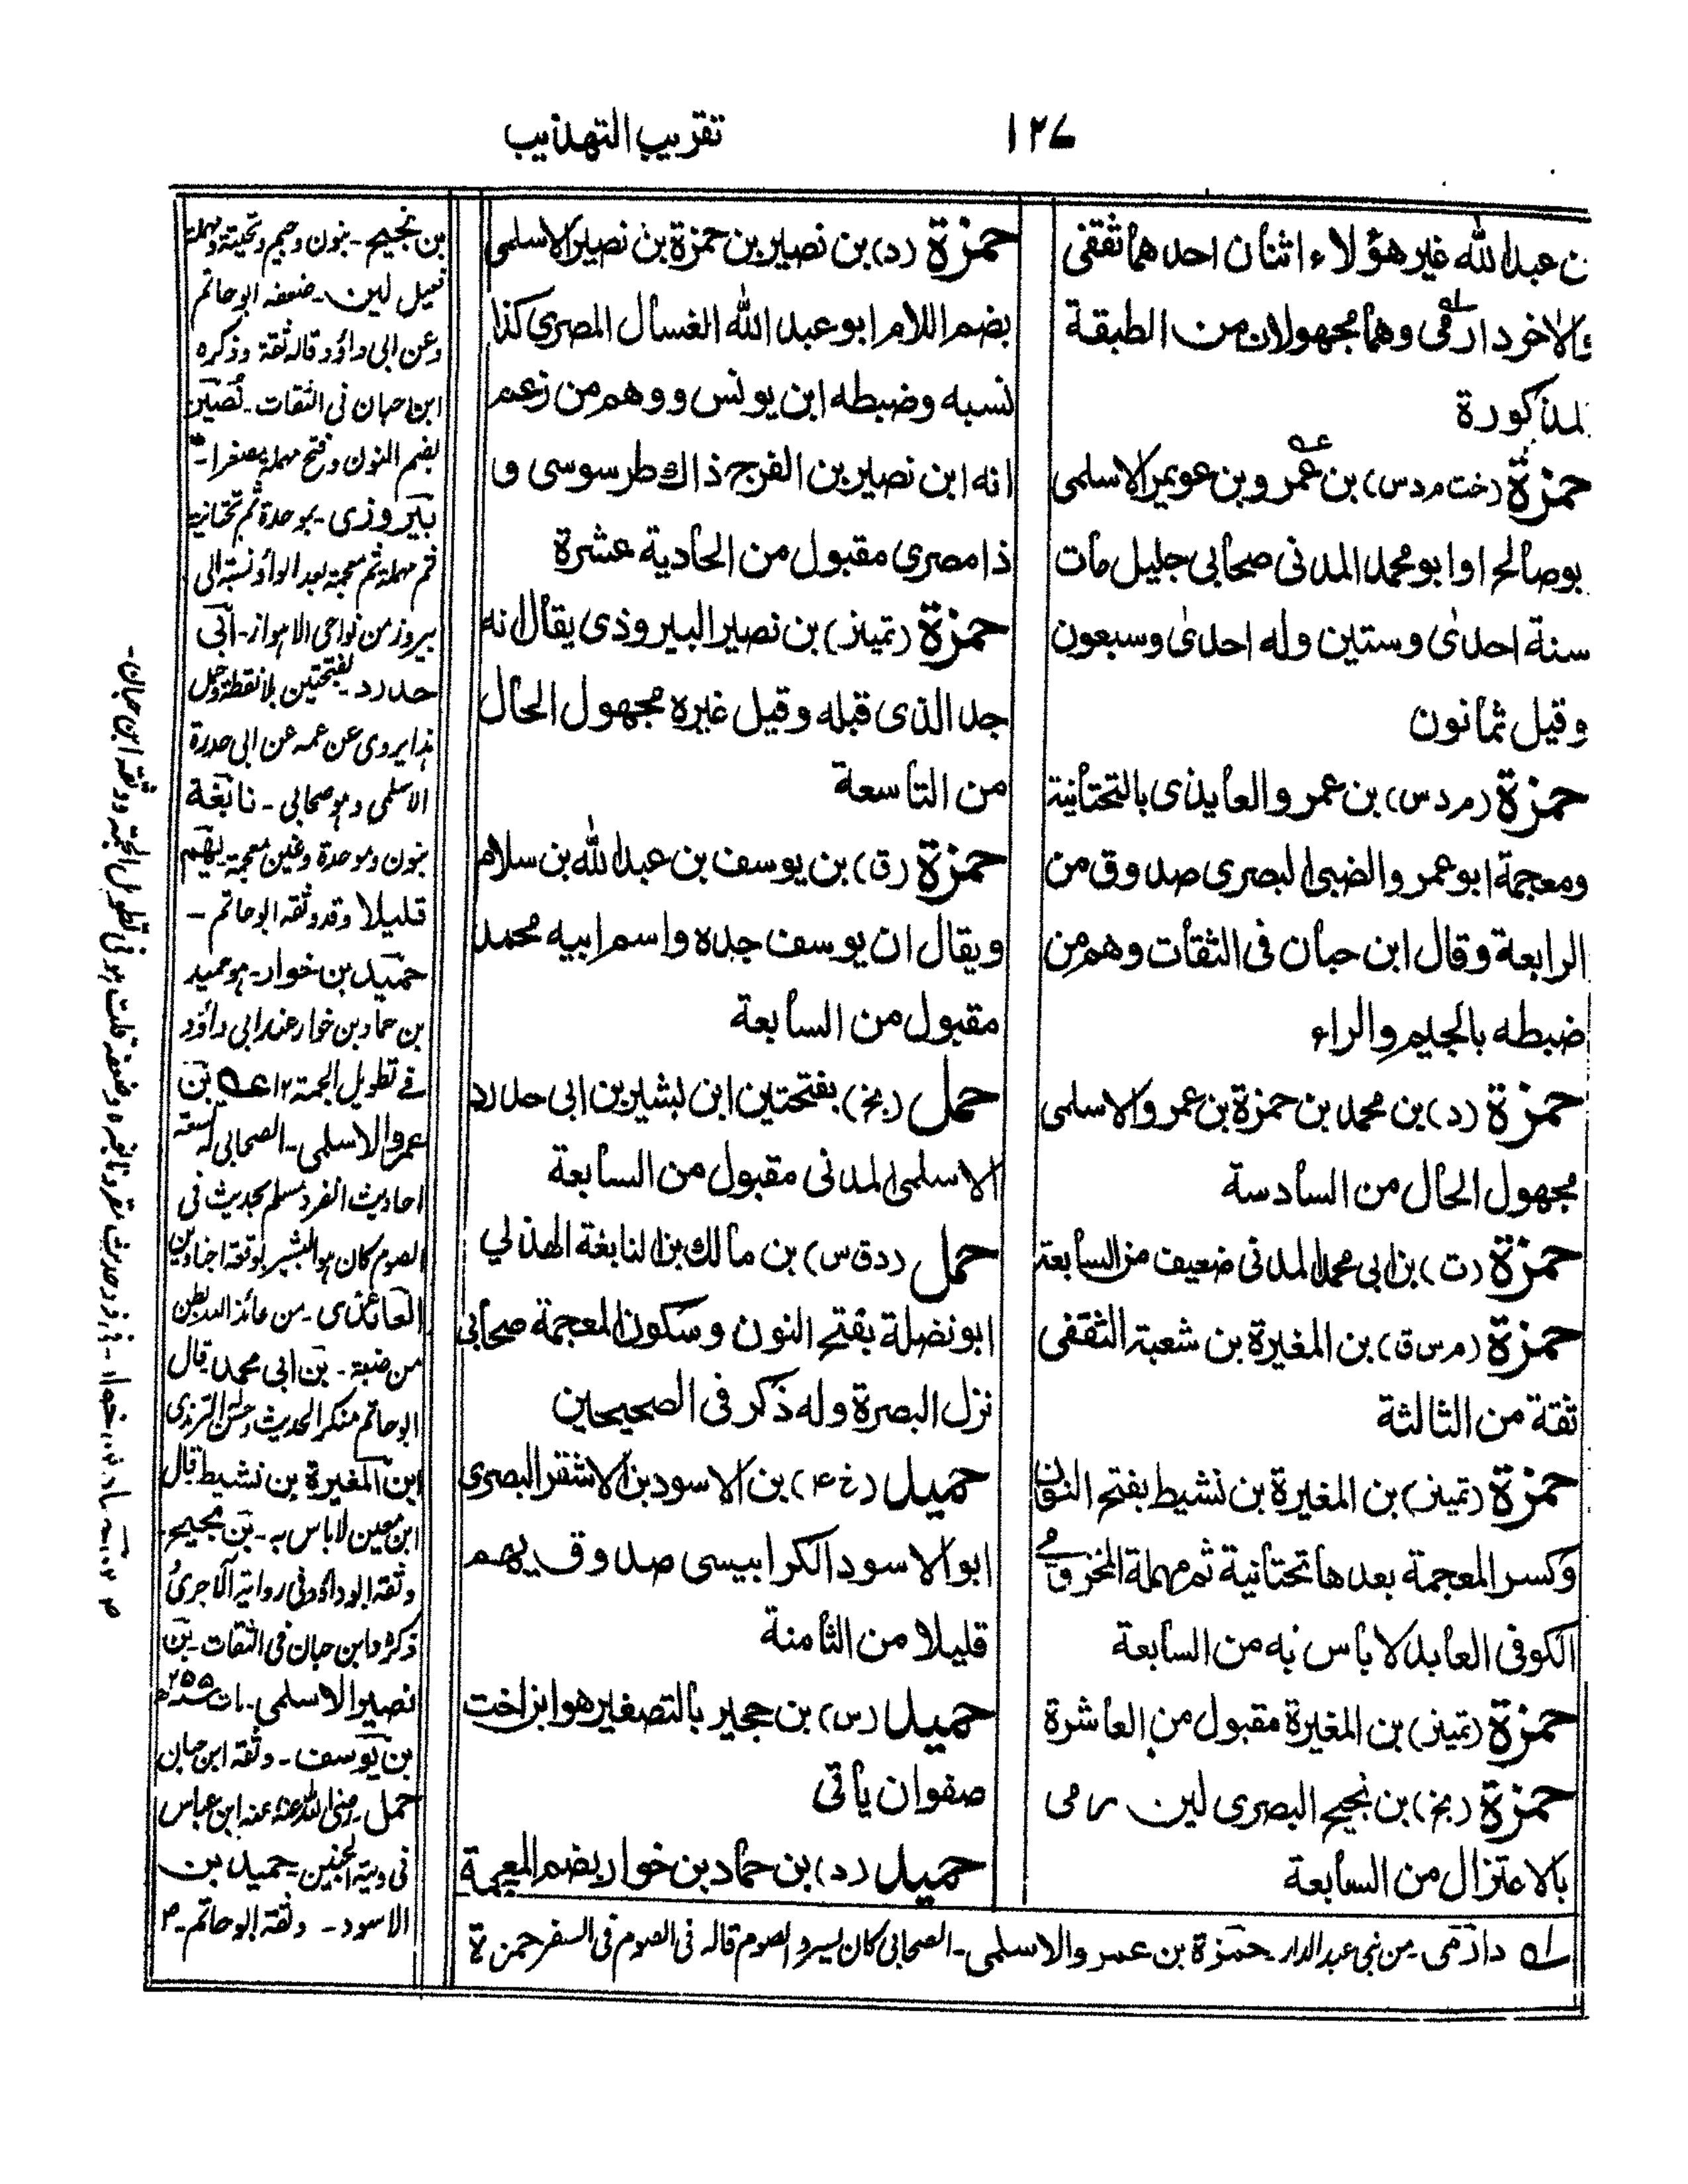 ١٢٧
تقريب التهذيب
بن عبد الله غير هؤلاء اثنان احدهما ثقفى
والاخر دارمى وهما مجهولان من الطبقة
المذكورة
حمزة (خت م د س) بن عمرو بن عويمر الاسلمى
ابو صالح او ابو محمد المدنى صحابى جليل مات
سنة احدى وستين وله احدى وسبعون
وقيل ثمانون
حمزة (م د س) بن عمرو العايذى بالتحتانية
ومعجمة ابو عمرو الضبى البصرى صدوق من
الرابعة وقال ابن حبان فى الثقات وهم من
ضبطه بالجيم والراء
حمزة (د) بن محمد بن حمزة بن عمرو الاسلمى
مجهول الحال من السادسة
حمزة (ت) بن ابى محمد المدنى ضعيف من السابعة
حمزة (م س ق) بن المغيرة بن شعبة الثقفى
ثقة من الثالثة
حمزة (تمييز) بن المغيرة بن نشيط بفتح النون
وكسر المعجمة بعدها تحتانية ثم مهملة المخزومى
الكوفى العابد لا باس به من السابعة
حمزة (تمييز) بن المغيرة مقبول من العاشرة
حمزة (بخ) بن نجيح البصرى لين رمى
بالاعتزال من السابعة
حمزة (د) بن نصير بن حمزة بن نصير الاسلمى
بضم اللام ابو عبد الله الغسال المصرى كذا
نسبه وضبطه ابن يونس ووهم من زعم
انه ابن نصير بن الفرج ذاك طرسوسى و
ذا مصرى مقبول من الحادية عشرة
حمزة (تميز) بن نصير البيروذى يقال انه
جد الذى قبله وقيل غيره مجهول الحال
من التاسعة
حمزة (ق) بن يوسف بن عبد الله بن سلام
ويقال ان يوسف جده واسم ابيه محمد
مقبول من السابعة
حمل (بخ) بفتحتين ابن بشير بن ابى حدرد
الاسلمى المدنى مقبول من السابعة
حمل (د ق س) بن مالك بن النابغة الهذلي
ابو نضلة بفتح النون وسكون المعجمة صحابى
نزل البصرة وله ذكر فى الصحيحين
حميد (خ ۴) بن الاسود بن الاشقر البصرى
ابو الاسود الكرابيسى صدوق يهم
قليلا من الثامنة
حميد (س) بن حجير بالتصغير هو ابن اخت
صفوان ياتى
حميد (د) بن حماد بن خوار بضم المعجمة
بن نجيح - بنون وجيم وتحتية ومهملة
قيل لين - ضعفه ابو حاتم
وعن ابى داؤد قال ثقة وذكره
ابن حبان فى الثقات - نصير
بضم النون وفتح مهملة مصغرا -
بيروزى - بموحدة ثم تحتانية
ثم مهملة ثم معجمة بعد الواو نسبة الى
بيروز من نواحى الاهواز - ابى
حدرد - بفتحتين بلا نقطة وحمل
هذا يروى عن عمه عن ابى حدرد
الاسلمى وهو صحابى - نابغة
بنون وموحدة وغين معجمة - يهم
قليلا وقد وثقه ابو حاتم -
حميد بن خوار - هو حميد
بن حماد بن خوار عند ابى داؤد
فے تطويل الجمة ۱۲ عه بن
عمرو الاسلمى - الصحابى له تسعة
احاديث انفرد مسلم بحديث فى
الصوم كان هو البشير بوقعة اجنادين
العائذى - من عائذ الله بطن
من ضبة - بن ابى محمد قال
ابو حاتم منكر الحديث وحسن الترمذى
ابن المغيرة بن نشيط قال
ابن معين لا باس به - بن نجيح -
وثقه ابو داؤد فى رواية الآجرى
ذكره ابن حبان فى الثقات - بن
نصير الاسلمى - مات سنة ٢٥٥ھ
بن يوسف - وثقه ابن حبان
حمل - رضى الله عنه عنه ابن عباس
فى دية الجنين - حميد بن
الاسود - وثقه ابو حاتم - ۱۲
له دارمى - من بنى عبد الدار - حمزة بن عمرو الاسلمى - الصحابى كان يسرد الصوم قاله فى الصوم فى السفر حمزة